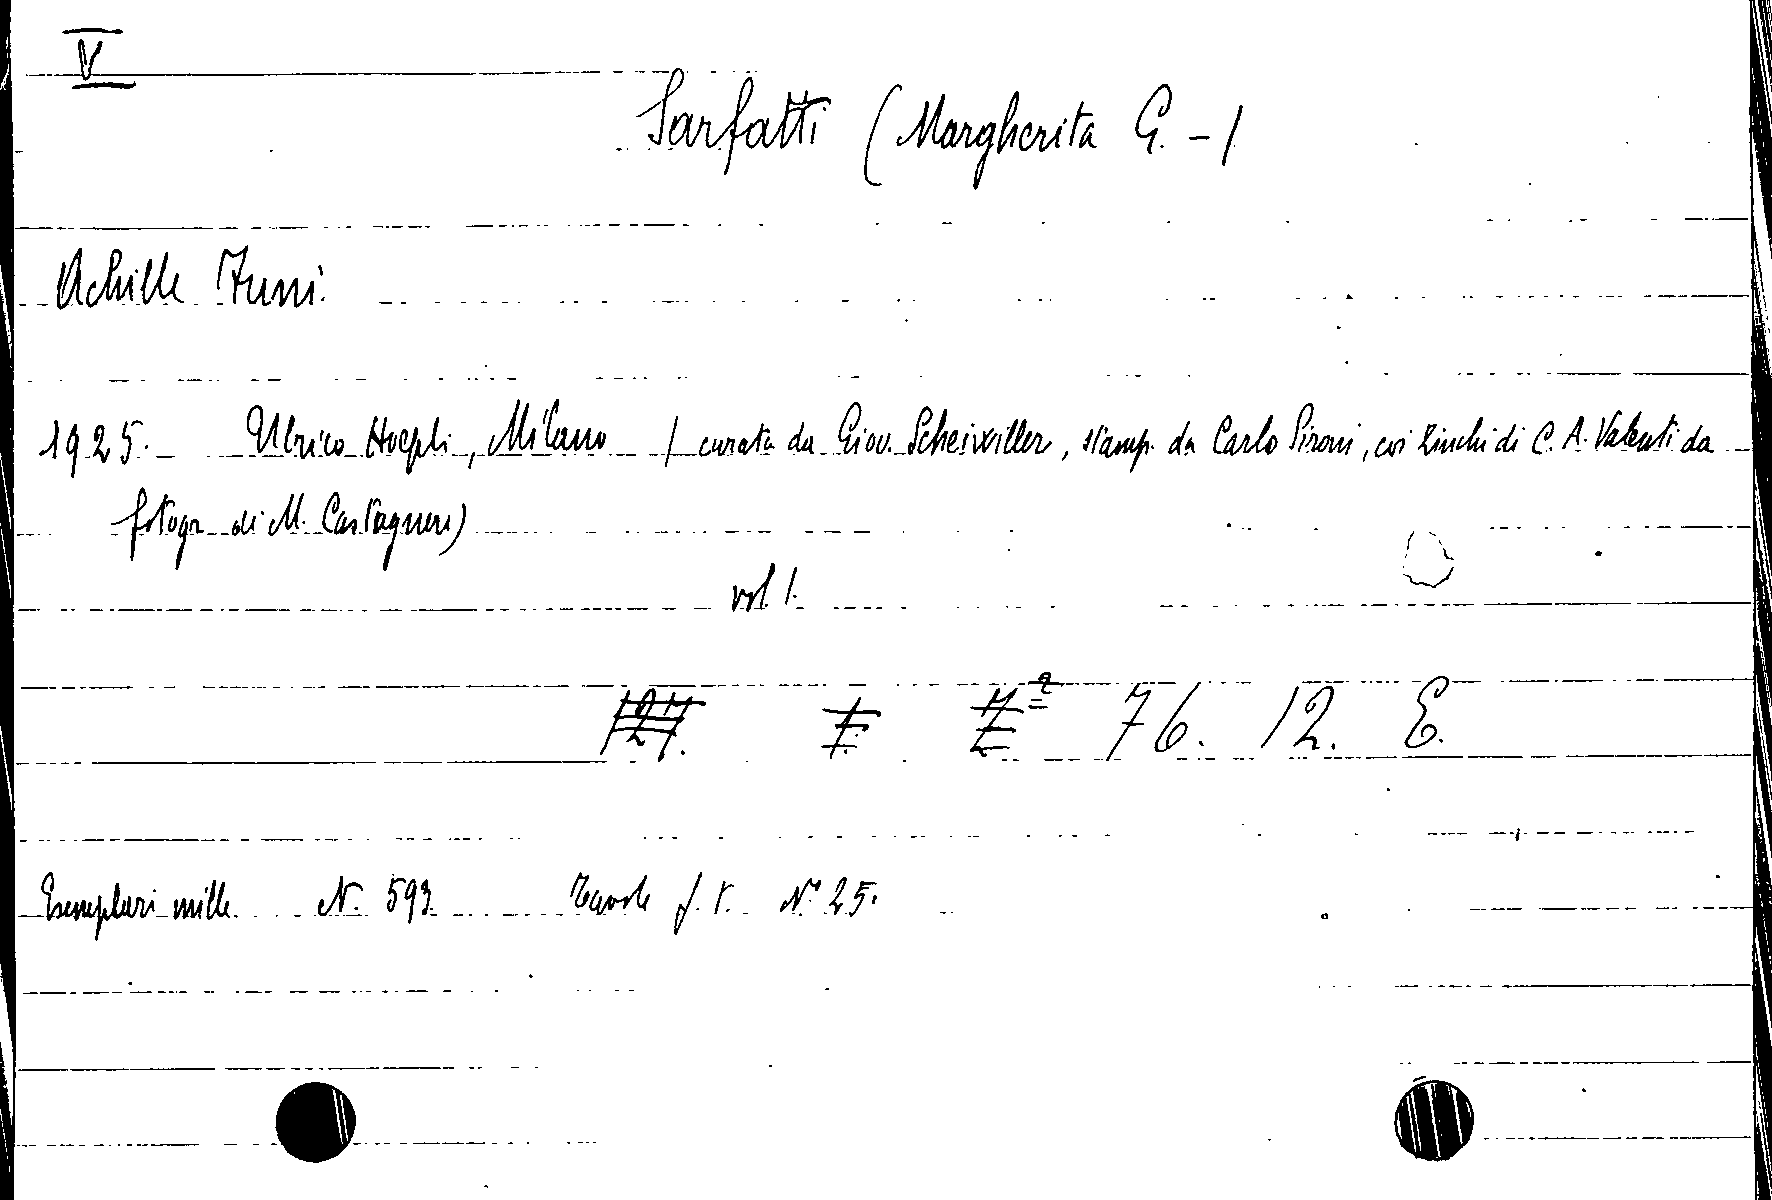 V
Sarfatti (Margherita G. -)
Achille Funi.
1925. Ulrico Hoepli, Milano (curata da Giov. Scheiwiller, stamp. da Carlo Sironi, coi zinchi di C. A. Valenti da
fotogr. di M. Castagneri)
vol. 1.
127. 7. Z² 76. 12. E.
Esemplari mille N. 593 Tavole f. t. N° 25.